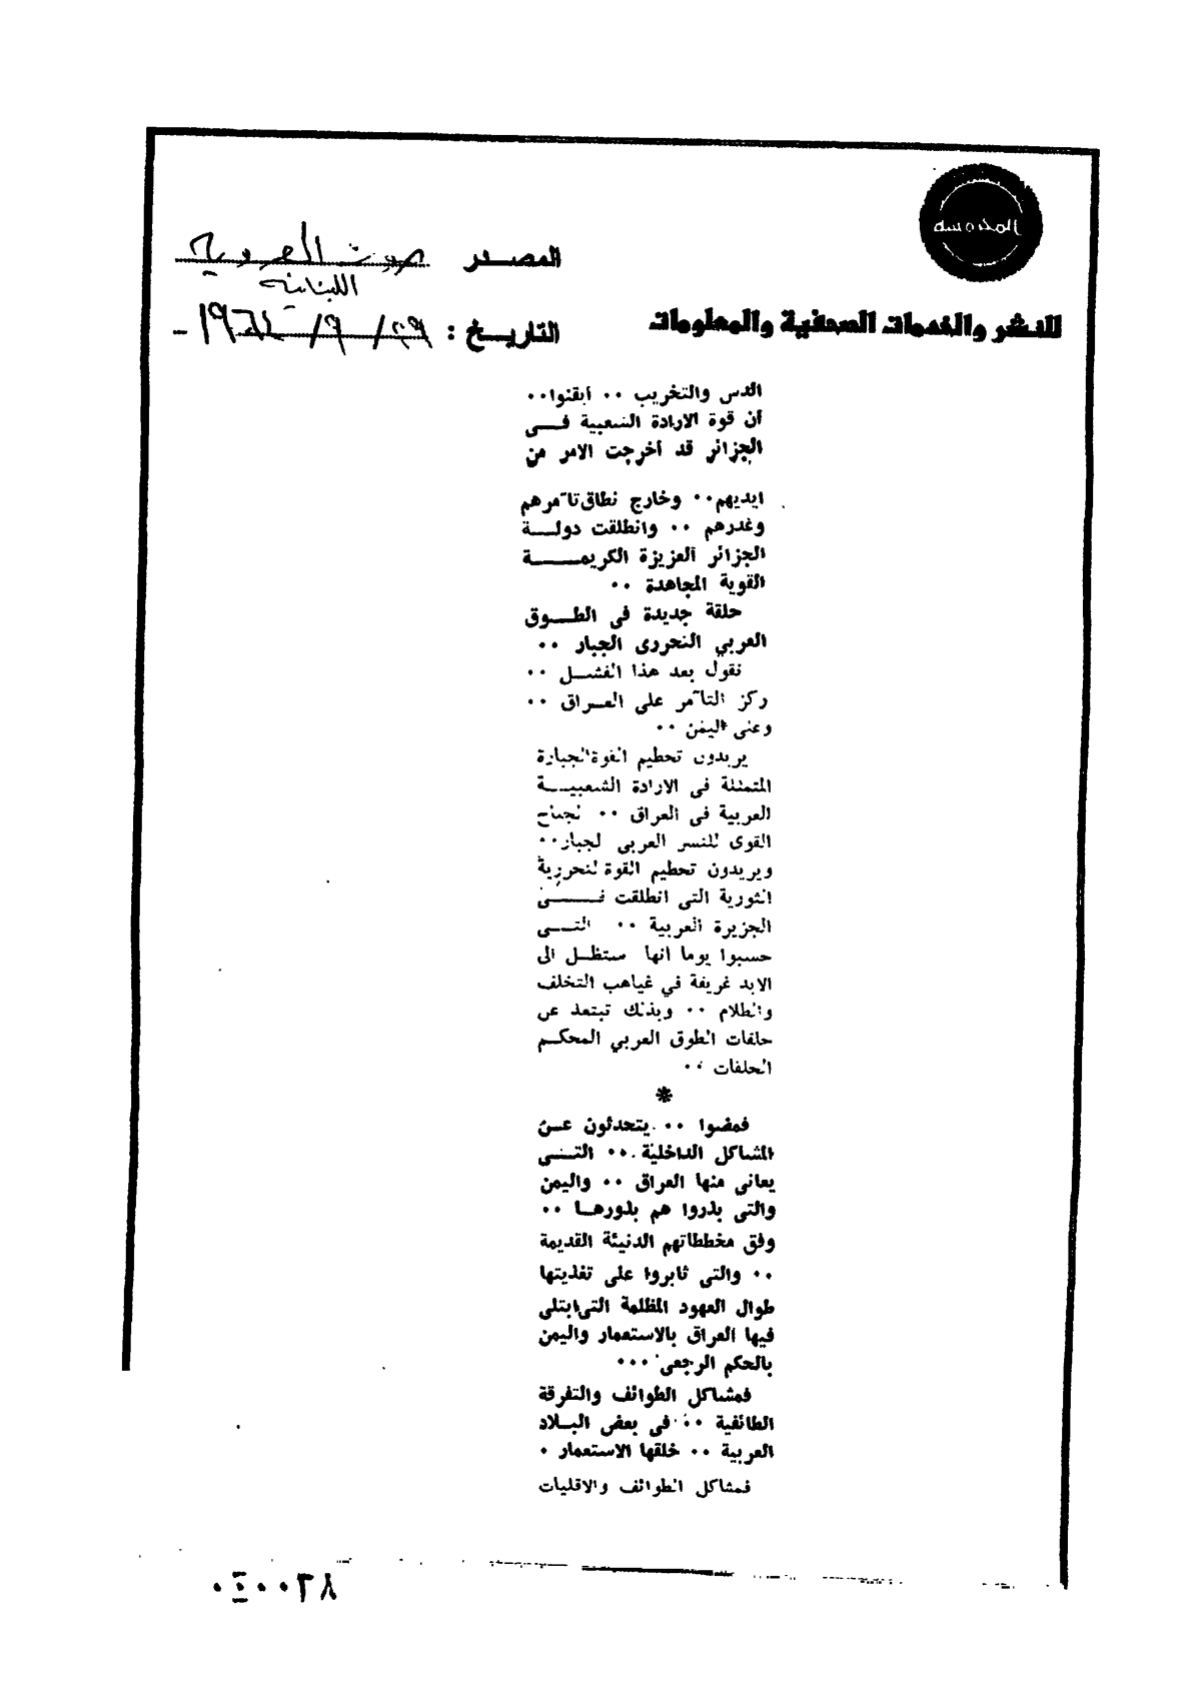 المحروسة
للنشر والخدمات الصحفية والمعلومات
المصدر صوت العروبة
اللبنانية
التاريخ : ٢٩ / ٩ /
الدس والتخريب ٠٠ أيقنوا٠٠
أن قوة الارادة الشعبية فى
الجزائر قد أخرجت الامر من
ايديهم٠٠ وخارج نطاق تآمرهم
وغدرهم ٠٠ وانطلقت دولة
الجزائر العزيزة الكريمة
القوية المجاهدة ٠٠
حلقة جديدة فى الطوق
العربي التحررى الجبار ٠٠
نقول بعد هذا الفشل ٠٠
ركز التآمر على العراق ٠٠
وعلى اليمن ٠٠
يريدون تحطيم القوة الجبارة
المتمثلة فى الارادة الشعبية
العربية فى العراق ٠٠ لجناح
القوى للنسر العربى لجبار٠٠
ويريدون تحطيم القوة لتحررية
الثورية التى انطلقت فى
الجزيرة العربية ٠٠ التى
حسبوا يوما انها ستظل الى
الابد غريقة في غياهب التخلف
والظلام ٠٠ وبذلك تبتعد عن
حلقات الطوق العربي المحكم
الحلقات ٠٠
*
فمضوا ٠٠ يتحدثون عن
المشاكل الداخلية ٠٠ التى
يعانى منها العراق ٠٠ واليمن
والتى بذروا هم بذورها ٠٠
وفق مخططاتهم الدنيئة القديمة
٠٠ والتى ثابروا على تغذيتها
طوال العهود المظلمة التى ابتلى
فيها العراق بالاستعمار واليمن
بالحكم الرجعى ٠٠٠
فمشاكل الطوائف والتفرقة
الطائفية ٠٠ فى بعض البلاد
العربية ٠٠ خلقها الاستعمار ٠
فمشاكل الطوائف والاقليات